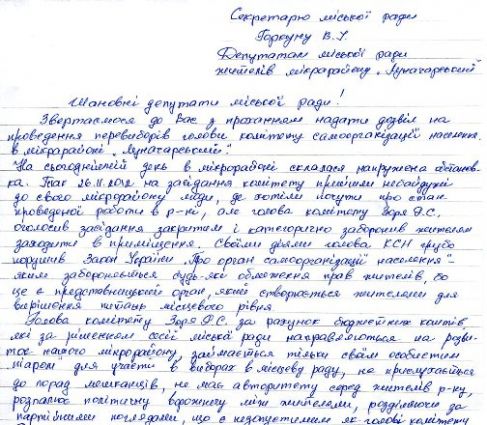 Секретарю міської ради
Горкуну В.У.
Депутатам міської ради
жителів мікрорайону „Луначарський"
Шановні депутати міської ради!
Звертаємося до Вас з проханням надати дозвіл на
проведення перевиборів голови комітету самоорганізації населення
в мікрорайоні „Луначарський".
На сьогоднішній день в мікрорайоні склалася напружена обстанов-
ка. Так 26.11.2012 на засідання комітету прийшли небайдужі
до свого мікрорайону люди, де хотіли почути про стан
проведеної роботи в р-ні, але голова комітету Зоря Ф.С.
оголосив засідання закритим і категорично заборонив жителям
заходити в приміщення. Своїми діями голова КСН грубо
порушив Закон України „Про орган самоорганізації населення"
яким забороняється будь-які обмеження прав жителів, бо
це є представницький орган, який створюється жителями для
вирішення питань місцевого рівня
Голова комітету Зоря Ф.С. за рахунок бюджетних коштів,
які за рішенням сесії міської ради направляються на розви-
ток нашого мікрорайону, займається тільки своїм особистим
піаром для участі в виборах в місцеву раду, не прислухається
до порад мешканців, не має авторитету серед жителів р-ну,
розпалює політичну ворожнечу між жителями, розділяючи за
партійними поглядами, що є недопустимим як голові комітету